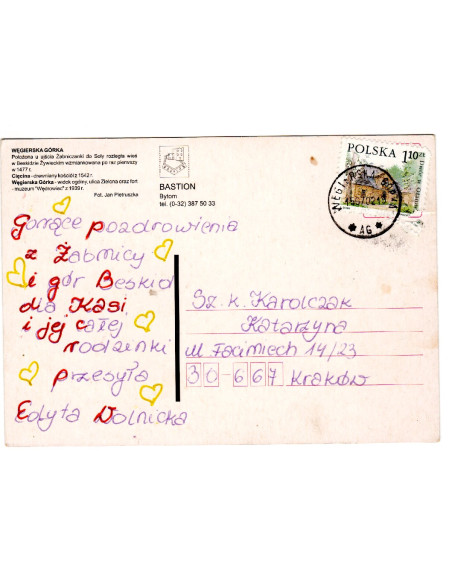 WĘGIERSKA GÓRKA
Położona u ujścia Żabniczanki do Soły rozległa wieś
w Beskidzie Żywieckim wzmiankowana po raz pierwszy
w 1477 r.
Cięcina - drewniany kościół z 1542 r.
Węgierska Górka - widok ogólny, ulica Zielona oraz fort
- muzeum "Wędrowiec" z 1939 r.
Fot. Jan Pietruszka
BASTION
Bytom
tel. (0-32) 387 50 33
POLSKA
1,10 zł
WĘGIERSKA GÓRKA
* AG *
Gorące pozdrowienia
z Żabnicy
i gór Beskid
dla Kasi
i jej całej
rodzinki
przesyła
Edyta Wolnicka
Sz. k. Karolczak
Katarzyna
ul. Facimiech 14/23
30-667 Kraków